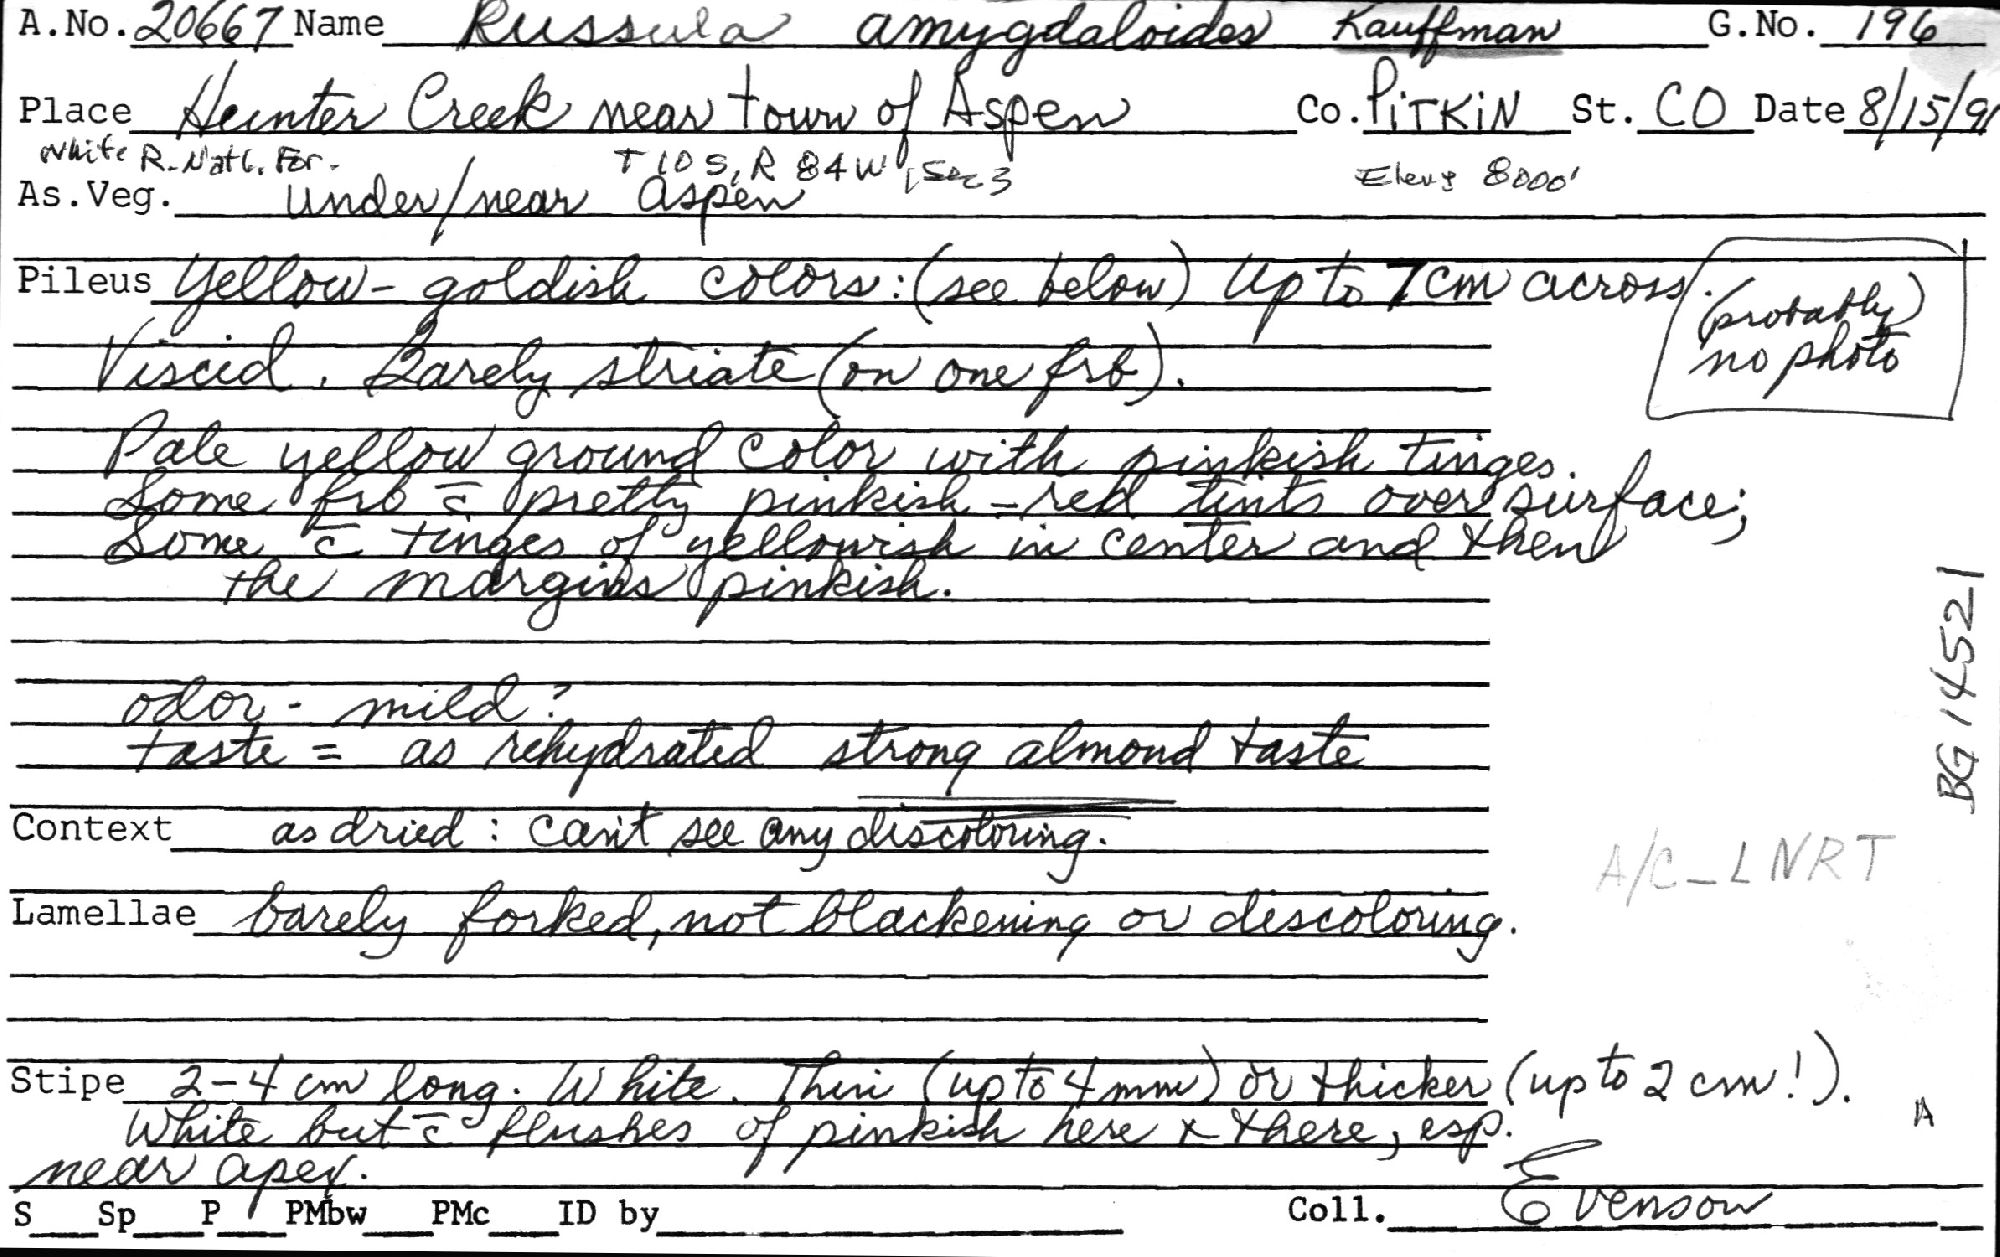 A.No. 20667 Name Russula amygdaloides Kauffman G.No. 196
Place Hunter Creek near town of Aspen Co. PiTKiN St. CO Date 8/15/91
White R. Natl. For. T10S, R 84W, Sec 3 Elev 8000'
As.Veg. under/near aspen
Pileus Yellow-goldish colors: (see below) Up to 7cm across.
(probably)
no photo
Viscid. Barely striate (on one frb).
Pale yellow ground color with pinkish tinges.
Some frb c̄ pretty pinkish-red tints over surface;
Some c̄ tinges of yellowish in center and then
the margins pinkish.
odor - mild?
taste = as rehydrated strong almond taste
Context as dried: can't see any discoloring.
Lamellae barely forked, not blackening or discoloring.
Stipe 2-4 cm long. White. Thin (up to 4mm) or thicker (up to 2 cm!).
White but c̄ flushes of pinkish here & there, esp.
near apex.
S Sp P PMbw PMc ID by Coll. Evenson
BG 14521
A/C_LNRT
A